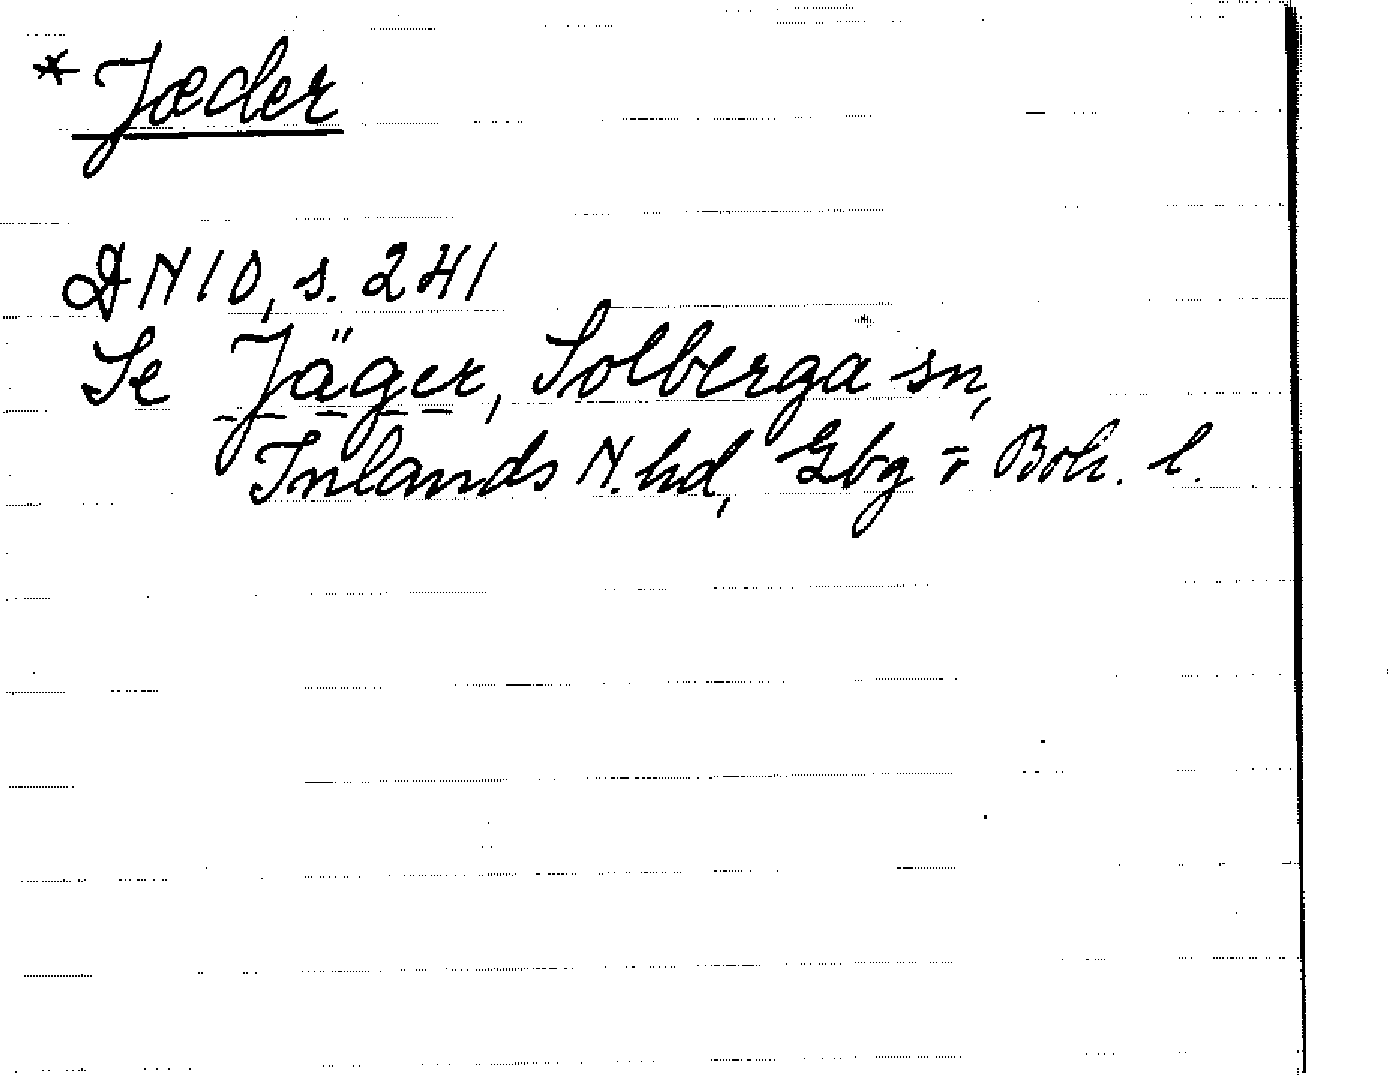 * Jæder
DN 10, s. 241
Se Jäger, Solberga sn,
Inlands N. hd, Gbg o. Boh. l.